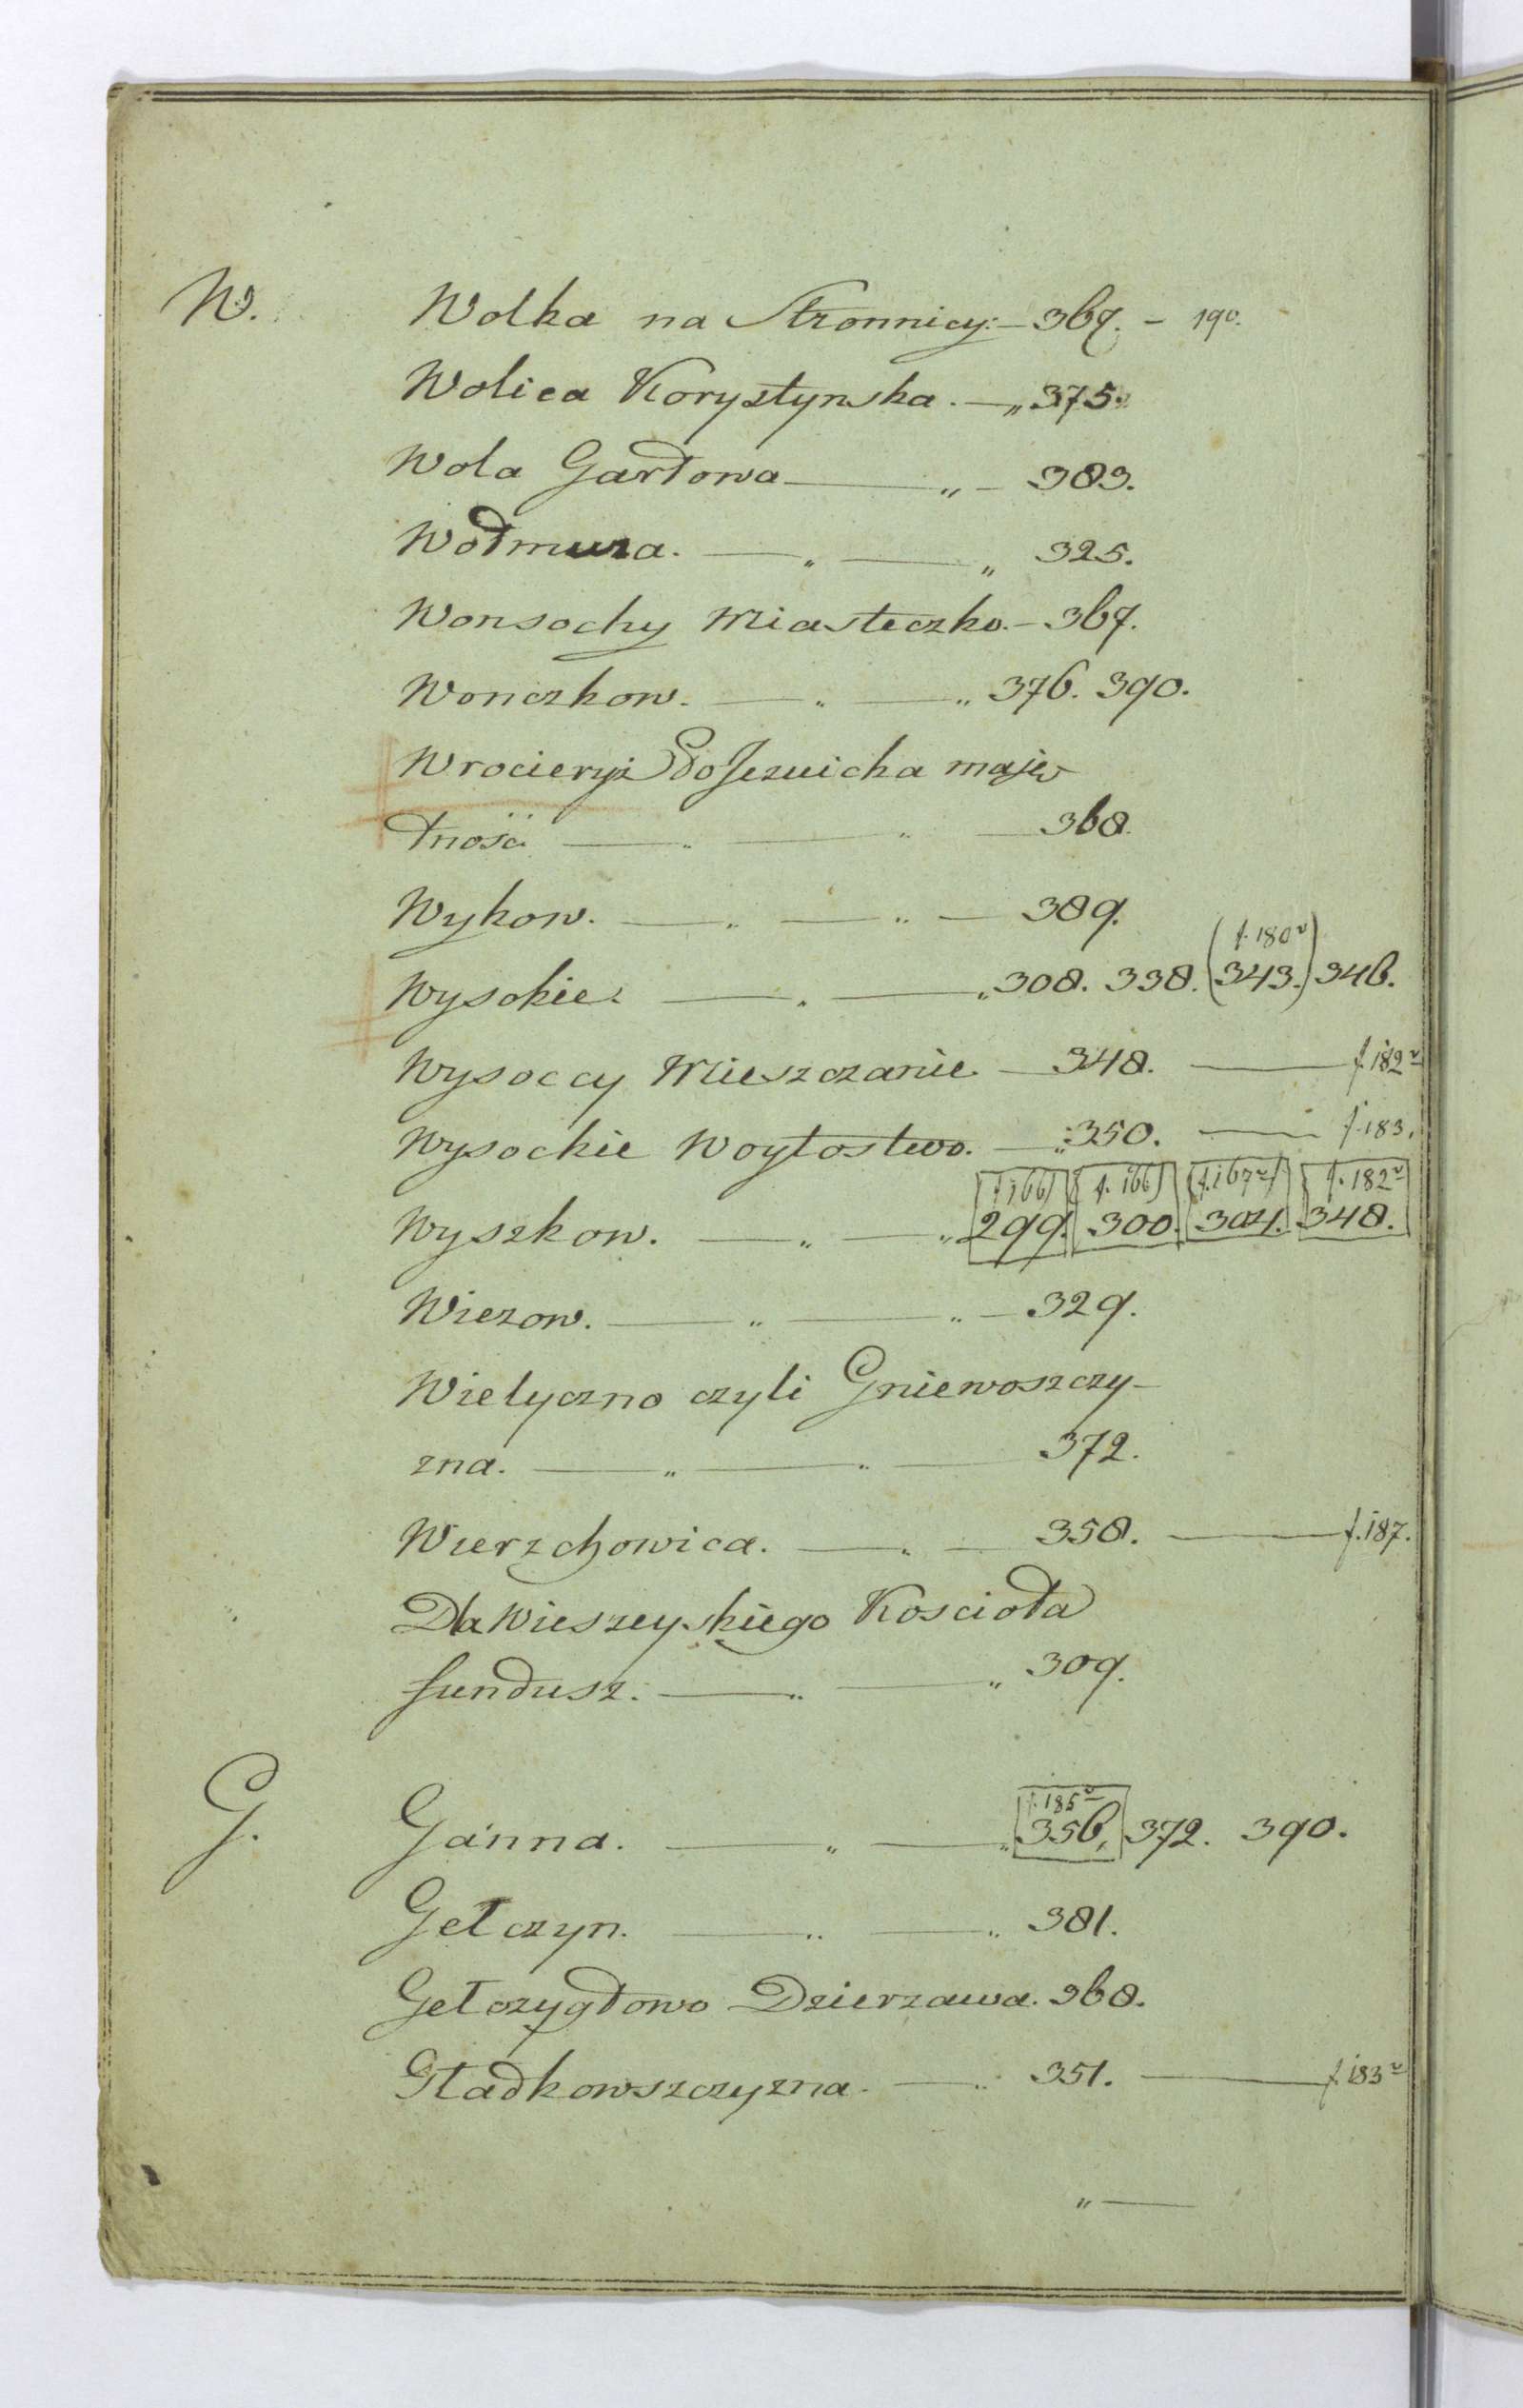 W. Wolka na Stronnicy: — 367. — 190.
Wolica Korystynska. — „ 375.
Wola Garłowa — „ — 383.
Wołmuza. — „ — „ 325.
Wonsochy Miasteczko. — 367.
Wonczkow. — „ — „ 376. 390.
Wrocieryż Jezuicka maję-
tność — „ — 368.
Wykow. — „ — „ — 389.
(f. 180v)
Wysokie. — „ — „ 308. 338. (343.) 346.
Wysoccy Mieszczanie — 348. — f. 182v
Wysockie Woytostwo. — „ 350. — f. 183.
f. 166 f. 166 f. 167v f. 182v
Wyszkow. — „ — „ 299. 300. 304. 348.
Wiezow. — „ — „ — 329.
Wielyczno czyli Gniewoszczy-
zna. — „ — „ — 372.
Wierzchowica. — „ — 358. — f. 187.
Dla Wieszeyskiego Kościoła
fundusz. — „ — „ 309.
f. 185v
G. Ganna. — „ — „ 356, 372. 390.
Gełczyn. — „ — „ 381.
Gełczygłowo Dzierzawa. 368.
Gładkowszczyzna. — „ 351. — f. 183v
„ —